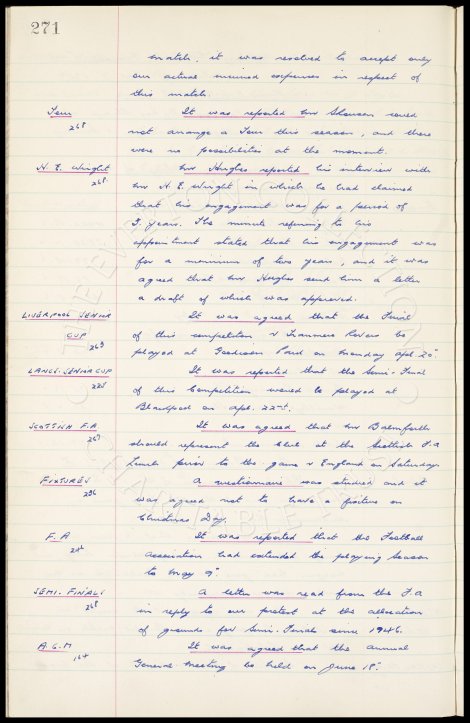 271
match, it was resolved to accept only
our actual incurred expenses in respect of
this match.
Tour
268
It was reported Mr Shawson could
not arrange a Tour this season, and there
were no possibilities at the moment.
H. E. Wright
268
Mr Hughes reported his interview with
Mr H. E. Wright in which he had claimed
that his engagement was for a period of
5 years. The minute referring to his
appointment stated that his engagement was
for a minimum of two years, and it was
agreed that Mr Hughes send him a letter
a draft of which was approved.
LIVERPOOL SENIOR
CUP
269
It was agreed that the Final
of this competition v Tranmere Rovers be
played at Goodison Park on Monday Apl. 20th
LANCS. SENIOR CUP
225
It was reported that the Semi-Final
of this Competition would be played at
Blackpool on Apl. 22nd.
SCOTTISH F.A
267
It was agreed that Mr Balmforth
should represent the Club at the Scottish F.A
Lunch prior to the game v England on Saturday.
FIXTURES
236
A questionnaire was studied and it
was agreed not to have a fixture on
Christmas Day.
F. A
244
It was reported that the Football
Association had extended the playing season
to May 9th
SEMI. FINALS
268
A letter was read from the F.A
in reply to our protest at the allocation
of grounds for Semi-Finals since 1946.
A.G.M
164
It was agreed that the annual
General Meeting be held on June 18th
THE EVERTON COLLECTION
CHARITABLE TRUST